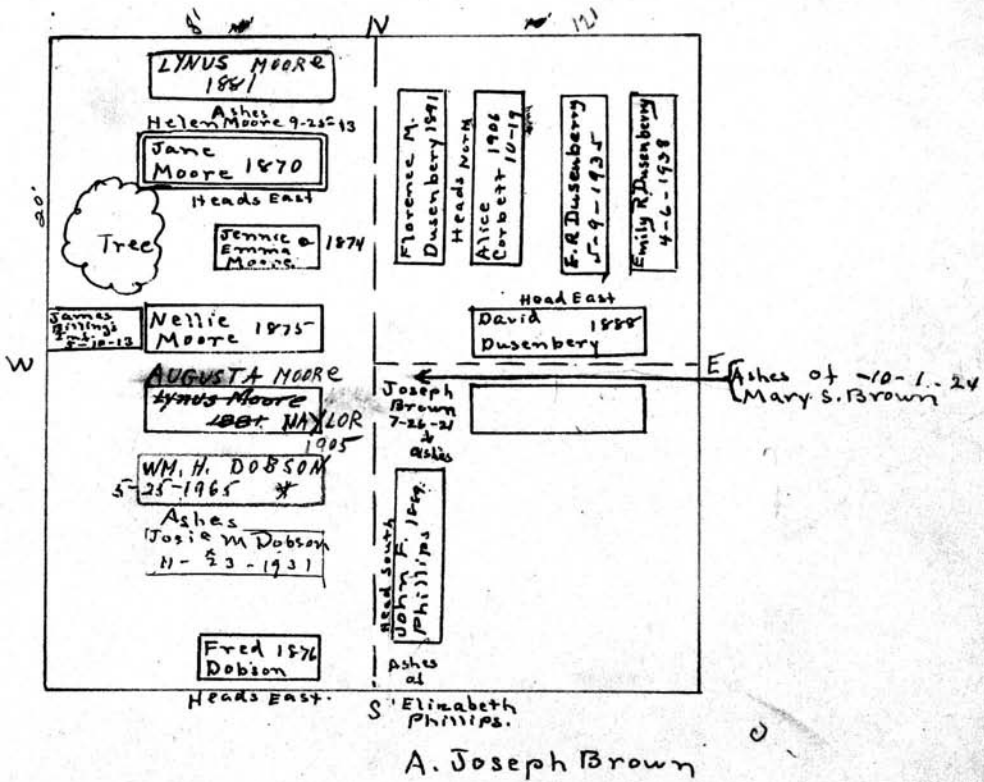 8' N 12'
LYNUS MOORE
1881
Ashes
Helen Moore 9-25-13
Jane
Moore 1870
Heads East
20'
Tree
Jennie
Emma
Moore
1874
James
Billings
5-10-13
Nellie
Moore 1875
W
AUGUSTA MOORE
Lynus Moore
1881 NAYLOR
1905
WM. H. DOBSON
5-25-1965 *
Ashes
Josie M Dobson
11-23-1931
Fred 1876
Dobson
Heads East.
Florence M.
Dusenberry 1891
Heads North
Alice 1906
Corbett 10-19
F.R. Dusenberry
5-9-1935
Emily R. Dusenberry
4-6-1938
Head East
David 1888
Dusenbery
E
Ashes of -10-1-24
Mary S. Brown
Joseph
Brown
7-26-21
Ashes
Head South
John F.
Phillips
Ashes
of
S Elizabeth
Phillips.
A. Joseph Brown